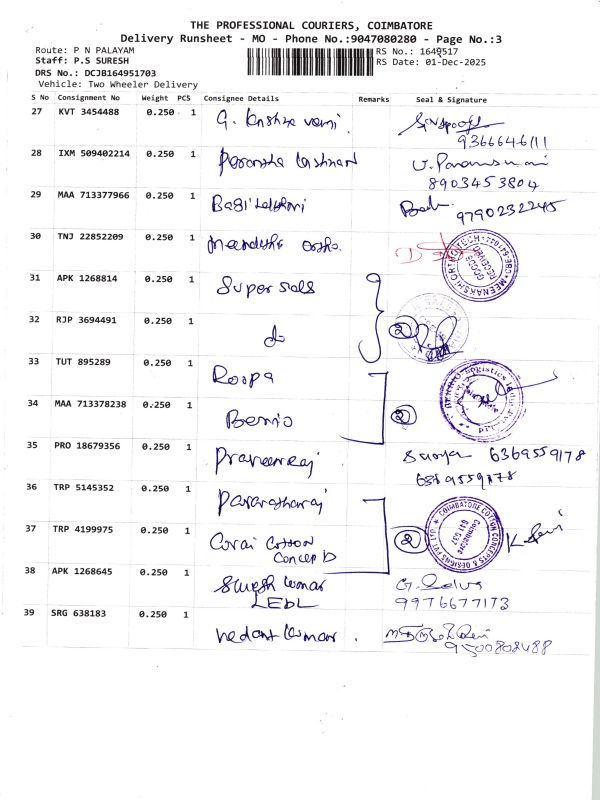 THE PROFESSIONAL COURIERS, COIMBATORE
Delivery Runsheet - MO - Phone No.:9047080280 - Page No.:3
Route: P N PALAYAM RS No.: 1649517
Staff: P.S SURESH RS Date: 01-Dec-2025
DRS No.: DCJB164951703
Vehicle: Two Wheeler Delivery
S No Consignment No Weight PCS Consignee Details Remarks Seal & Signature
27 KVT 3454488 0.250 1 G.
9366646111
28 IXM 509402214 0.250 1
8903453804
29 MAA 713377966 0.250 1
9790232245
30 TNJ 22852209 0.250 1
GOODS RECEIVED
31 APK 1268814 0.250 1 Super
32 RJP 3694491 0.250 1 do 2
33 TUT 895289 0.250 1 Roopa
34 MAA 713378238 0.250 1 2
35 PRO 18679356 0.250 1 Praveenraj Surya 6369559178
6369559178
36 TRP 5145352 0.250 1
37 TRP 4199975 0.250 1 Cotton 2
COIMBATORE COTTON CONCEPTS & DESIGNS PVT LTD
Coimbatore
641 037
38 APK 1268645 0.250 1 Kumar G.
9976677173
39 SRG 638183 0.250 1 Vedant Kumar.
9500808488